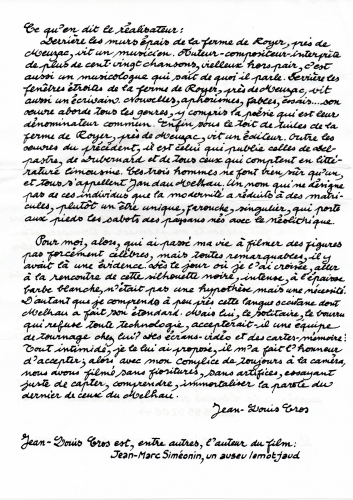 Ce qu'en dit le réalisateur:
Derrière les murs épais de la ferme de Royer, près de
Meuzac, vit un musicien. Auteur-compositeur-interprète
de plus de cent vingt chansons, vielleux hors pair, c'est
aussi un musicologue qui sait de quoi il parle. Derrière les
fenêtres étroites de la ferme de Royer, près de Meuzac, vit
aussi un écrivain. Nouvelles, aphorismes, fables, essais....son
œuvre aborde tous les genres, y compris la poésie qui est leur
dénominateur commun. Enfin sous le toit de tuiles de la
ferme de Royer, près de Meuzac, vit un éditeur. Outre les
œuvres du précédent, il est celui qui publie celles de Del-
pastre, de Dubernard et de tous ceux qui comptent en litté-
rature limousine. Ces trois hommes ne font bien sûr qu'un,
et tous s'appellent Jan dau Melhau. Un nom qui ne désigne
pas de ces individus que la modernité a réduits à des matri-
cules, plutôt un être unique, farouche, singulier, qui porte
aux pieds les sabots des paysans nés avec le néolithique.
Pour moi, alors, qui ai passé ma vie à filmer des figures
pas forcément célèbres, mais toutes remarquables, il y
avait là une évidence. Dès le jour où je l'ai croisé, aller
à la rencontre de cette silhouette noire, intense, à l'épaisse
barbe blanche, n'était pas une hypothèse mais une nécessité.
D'autant que je comprends à peu près cette langue occitane dont
Melhau a fait son étendard. Mais lui, le solitaire, le bourru
qui refuse toute technologie, accepterait-il une équipe
de tournage chez lui? Des écrans-vidéo et des cartes-mémoire?
Tout intimidé, je le lui ai proposé, il m'a fait l'honneur
d'accepter; alors avec mon complice de toujours à la caméra,
nous avons filmé, sans fioritures, sans artifices, essayant
juste de capter, comprendre, immortaliser la parole du
dernier de ceux du Melhau.
Jean-Louis Cros
Jean-Louis Cros est, entre autres, l'auteur du film:
Jean-Marc Siméonin, un auseu lo mot jaud